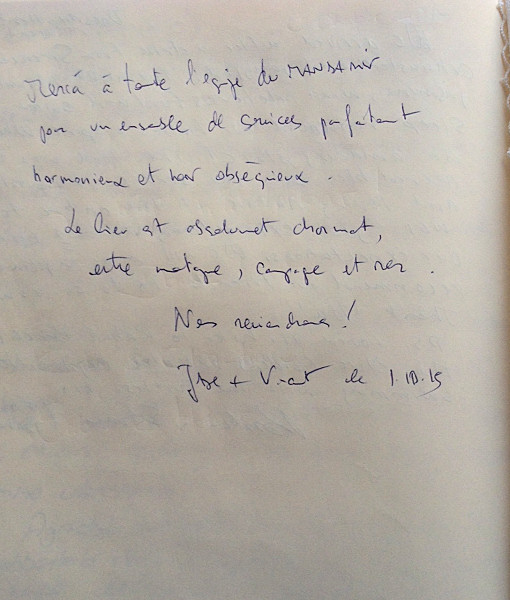 Merci à toute l'équipe du MANDAMIR
pour un ensemble de services parfaitement
harmonieux et non obséquieux.
Le lieu est absolument charmant,
entre montagne, campagne et mer.
Nous reviendrons !
+ Vincent le 1.10.15